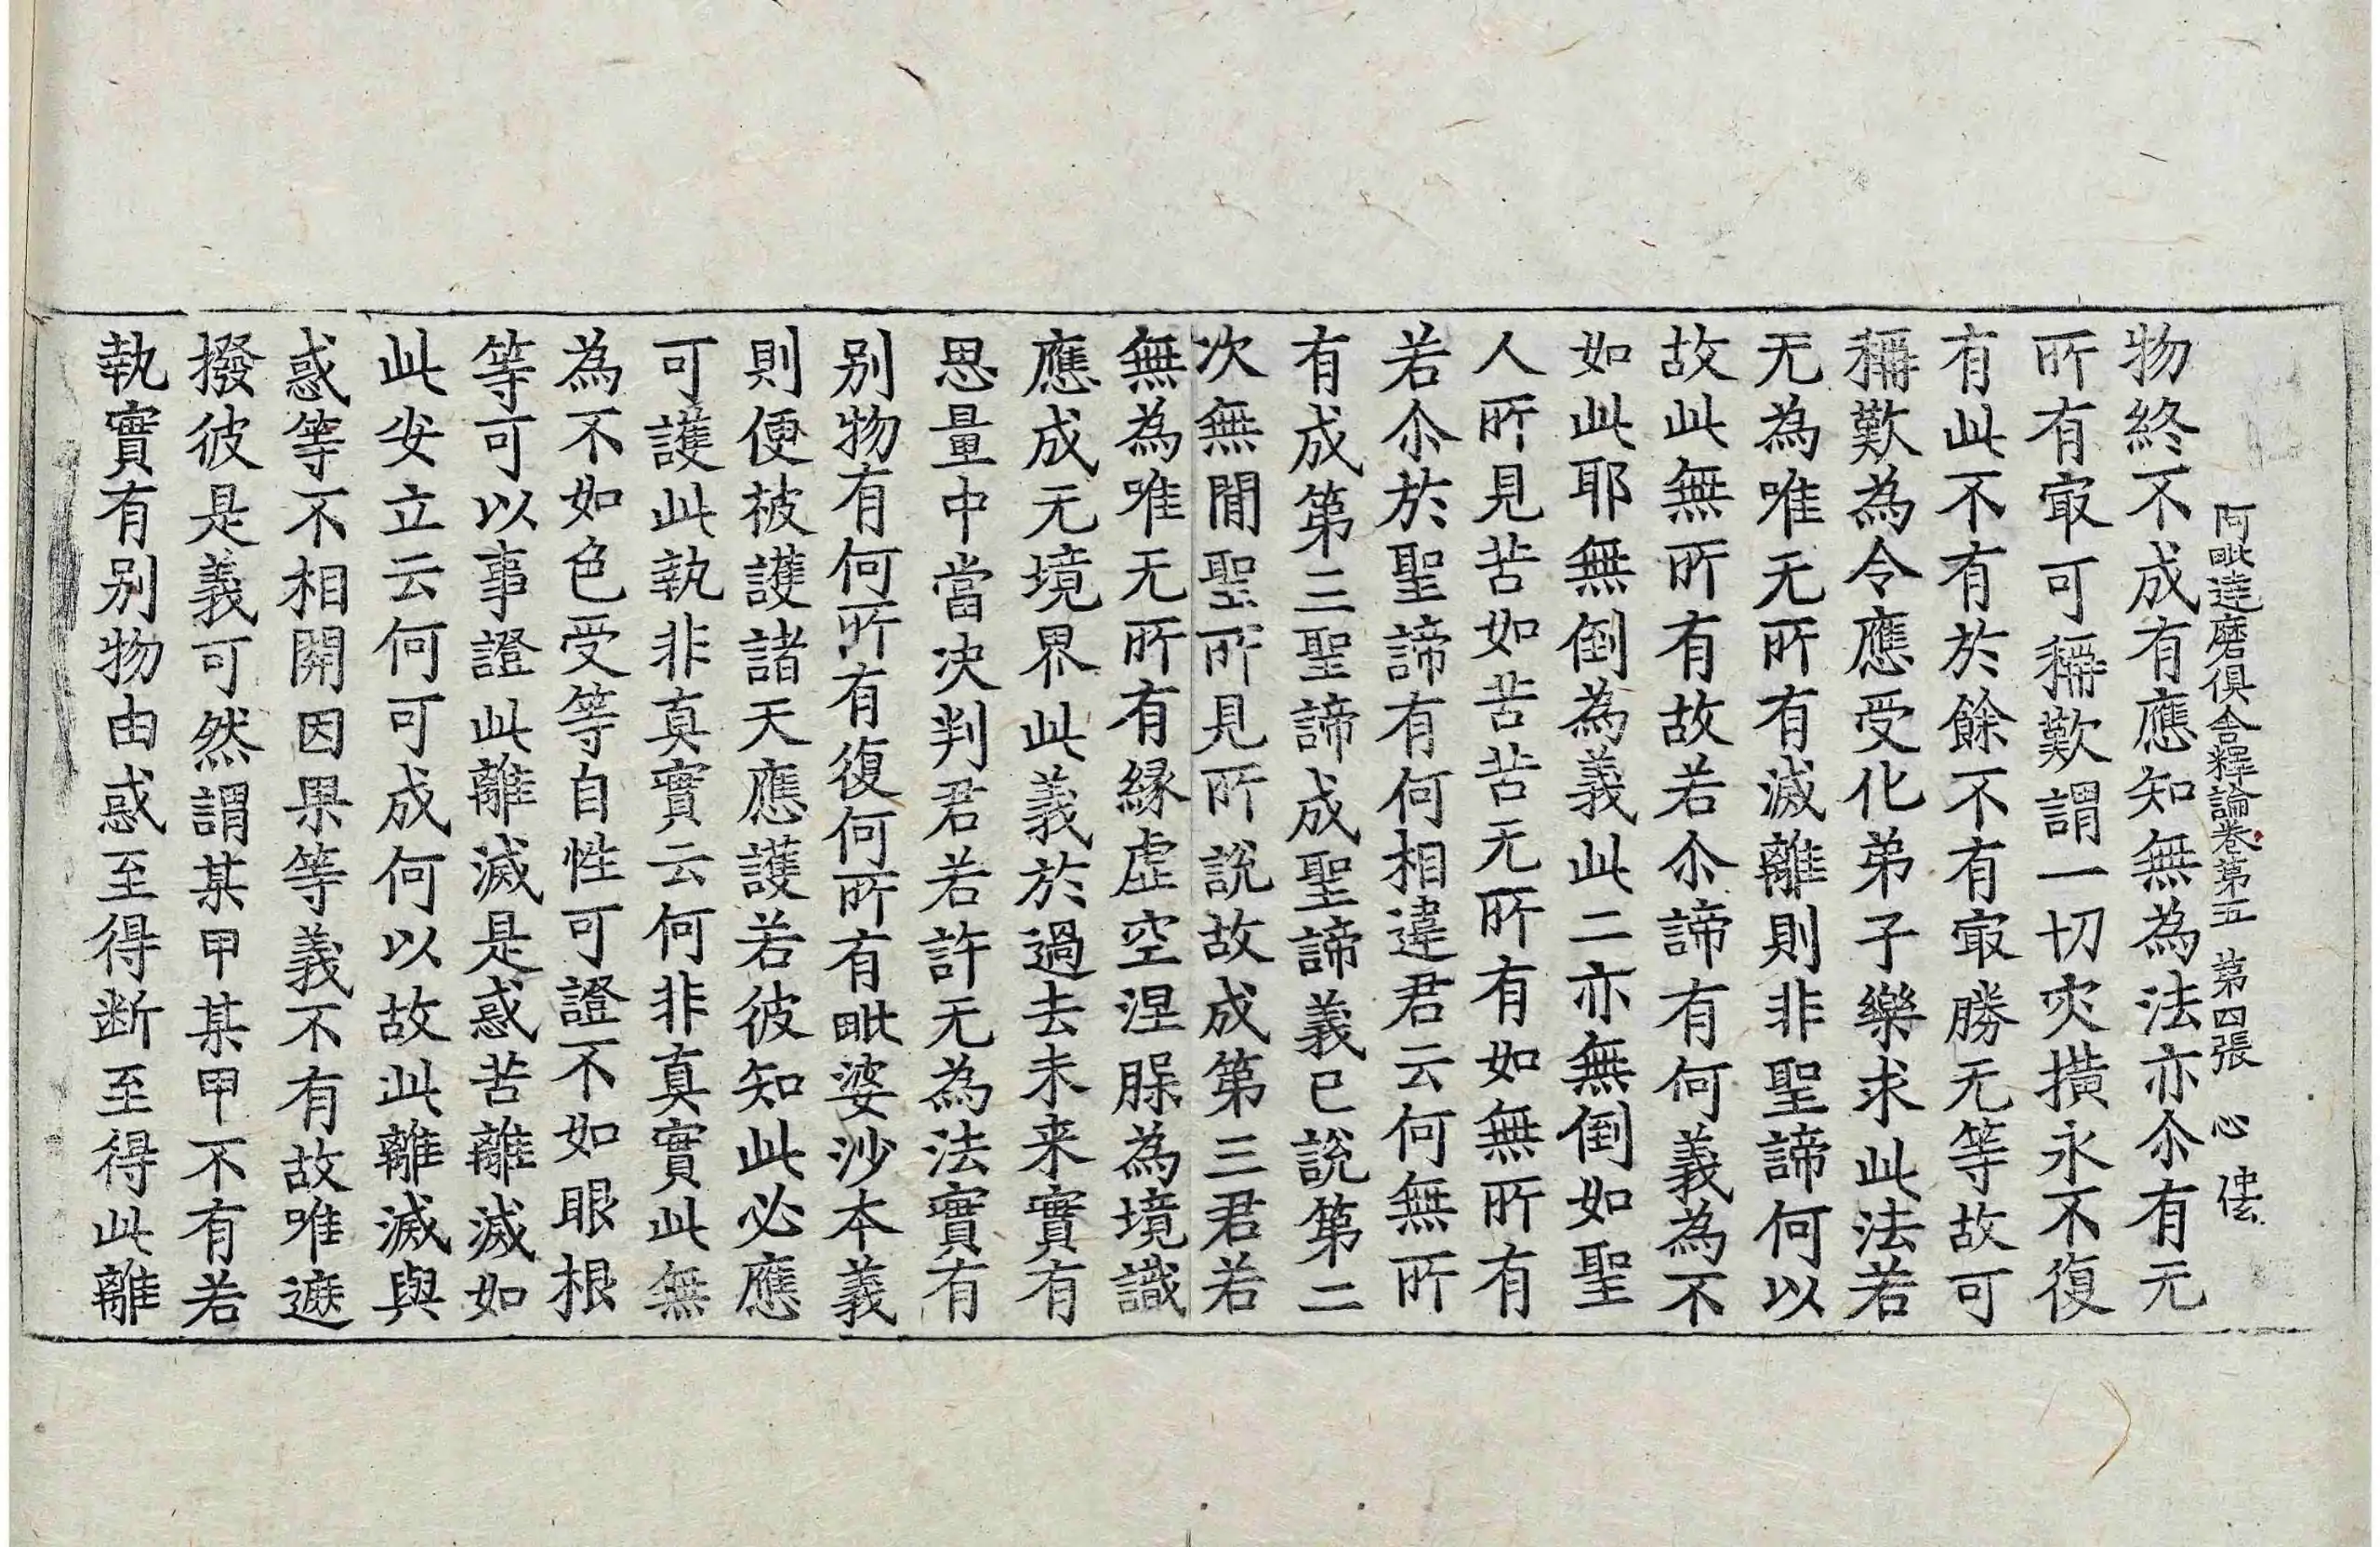 阿毗達磨俱舍釋論卷第五 第四張 心
物終不成有應知無為法亦尒有无
所有㝡可稱歎謂一切灾撗永不復
有此不有於餘不有㝡勝无等故可
稱歎為令應受化弟子樂求此法若
无為唯无所有滅離則非聖諦何以
故此無所有故若尒諦有何義為不
如此耶無倒為義此二亦無倒如聖
人所見苦如苦苦无所有如無所有
若尒於聖諦有何相違君云何無所
有成第三聖諦成聖諦義已說第二
次無間聖所見所說故成第三君若
無為唯无所有緣虛空涅脲為境識
應成无境界此義於過去未来實有
思量中當决判君若許无為法實有
别物有何所有復何所有毗婆沙本義
則便被護諸天應護若彼知此必應
可護此執非真實云何非真實此無
為不如色受等自性可證不如眼根
等可以事證此離滅是惑苦離滅如
此安立云何可成何以故此離滅與
惑等不相開因果等義不有故唯遮
撥彼是義可然謂某甲某甲不有若
執實有别物由惑至得断至得此離